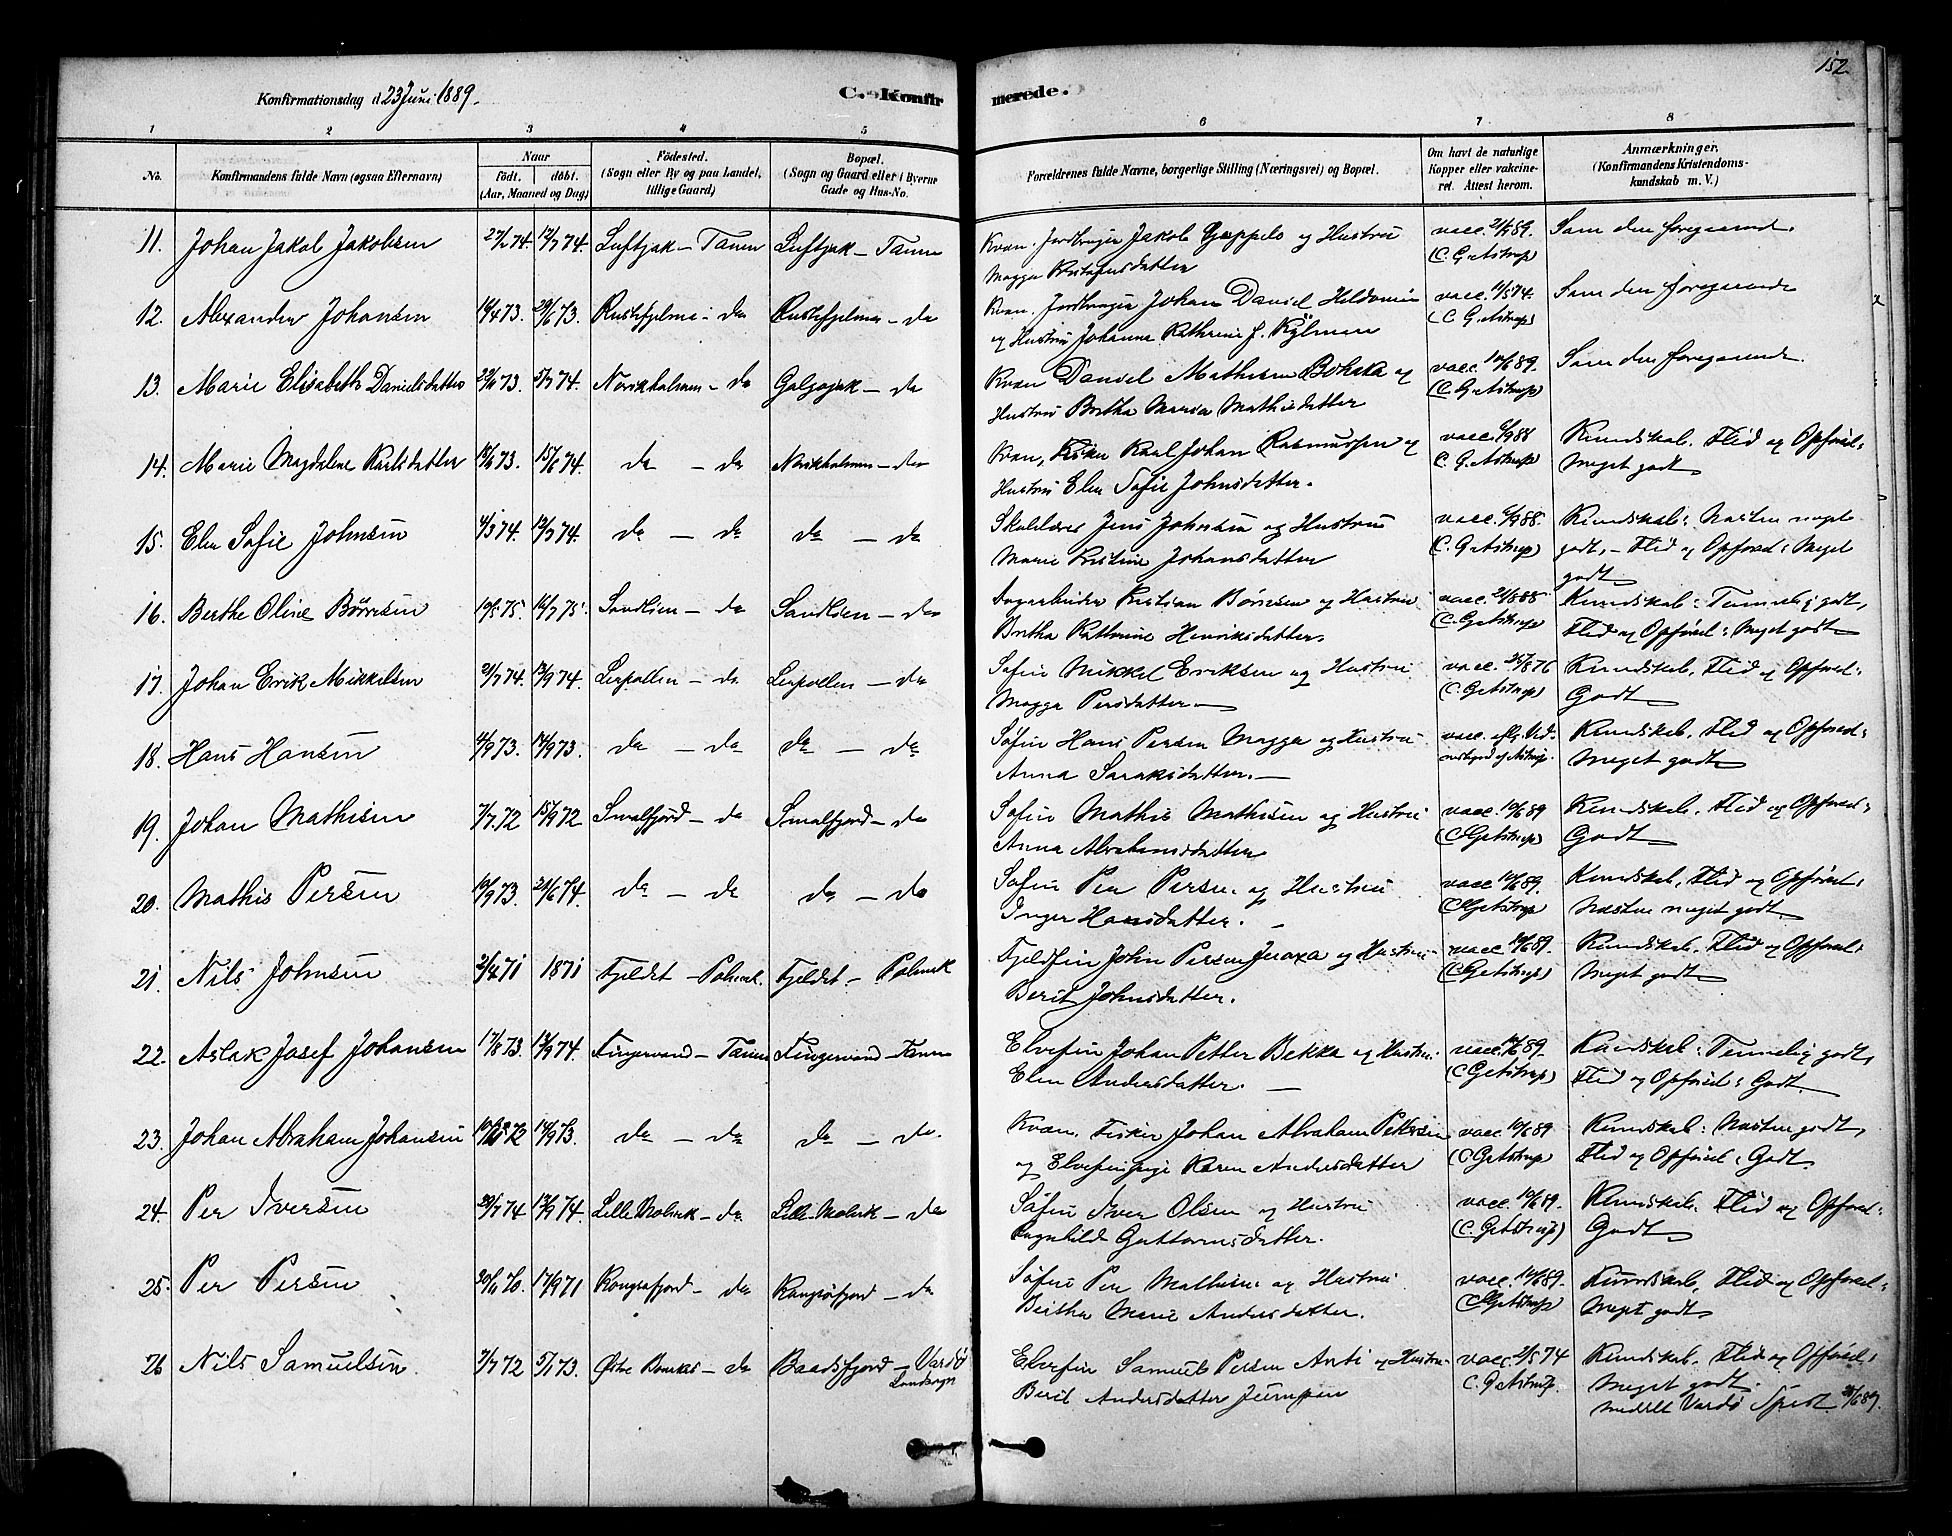 152.
Konfirmationsdag d 23 Juni 1889.
C. Konfirmerede.
1 2 3 4 5 6 7 8
No.
Konfirmandens fulde Navn (ogsaa Efternavn)
Naar
födt. döbt.
(Aar, Maaned og Dag)
Födested.
(Sogn eller By og paa Landet, tillige Gaard)
Bopæl.
(Sogn og Gaard eller i Byerne Gade og Hus-No.
Forældrenes fulde Navne, borgerlige Stilling (Næringsvei) og Bopæl.
Om havt de naturlige Kopper eller vakcineret. Attest herom.
Anmærkninger.
(Konfirmandens Kristendomskundskab m. V.)
11. Johan Jakob Jakobsen 12/7 74. Luftjok - Tanen Luftjok - Tanen Kvæn. Jordbruger Jakob og Hustru vacc. Som den foregaaende.
Magga (C. G. Astrup)
12. Alexander Johansen 14/4 73. 29/6 73. Rustefjelma - do Rustefjelma - do Kvæn. Jordbruger Johan Daniel og vacc. 11/5 74. Som den foregaaende
Hustru Johanna Kathrine J. Kÿlmæn (C. G. Astrup)
13. Marie Elisabeth Danielsdatter 5/7 74. Norskholmen - do Galgojok - do Kvæn Daniel Mathisen og vacc. 10/6 89. Som den foregaaende.
Hustru Bretha Maria Mathisdatter (C. G. Astrup)
14. Marie Magdalene Karlsdatter 15/6 74. do - do Norskholmen - do Kvæn, Fisker Karl Johan Rasmussen og vacc. 6/9 88 Kundskab. Flid og Opførsel:
Hustru Elen Sofie Johnsdatter. C. G. Astrup Meget godt
15. Elen Sofie Johnsen 4/3 74. 12/7 74. do - do do - do Skolelærer Jens Johnsen og Hustru vacc. 6/9 88. Kundskab: Næsten meget
Marie Kristine Johansdatter (C. G. Astrup) godt, - Flid og Opførsel: Meget godt
16. Berthe Oline Børresen 10/5 75. 16/7 75. Sandlien - do Sandlien - do Kristian Børresen og Hustru vacc. 21/8 88 Kundskab: Temmelig godt,
Bretha Kathrine Henriksdatter. (C. G. Astrup) Flid og Opførsel: Meget godt
17. Johan Erik Mikkelsen 21/7 74. 13/9 74. Leirpollen - do Leirpollen - do Søfin Mikkel Eriksen og Hustru vacc. 25/8 76 Kundskab. Flid og Opførsel:
Magga Persdatter. (C. G. Astrup) Godt
18. Hans Hansen 4/9 73. 14/9 73. do - do do - do Søfin Hans Persen Magga og Hustru vacc. Kundskab. Flid og Opførsel:
Anna af Astrup. Meget godt
19. Johan Mathisen 7/7. 72 15/9 72 Smalfjord - do Smalfjord - do Søfin Mathis Mathisen og Hustru vacc. 10/6 89 Kundskab. Flid og Opførsel:
Anna Abrahamsdatter (C G Astrup) Godt
20. Mathis Persen 10/9 73. 21/6 74. do - do do - do Søfin Per Persen og Hustru vacc 10/6 89. Kundskab, Flid og Opførsel:
Inger Hansdatter. (C G Astrup) Næsten meget godt.
21. Nils Johnsen 2/4 71 1871 Fjeldet - Polmak. Fjeldet - Polmak Fjeldfin John Persen og Hustru vacc. 10/6 89. Kundskab. Flid og Opførsel:
Berit Johnsdatter. (C G Astrup) Meget godt
22. Aslak Josef Johansen 17/8 73. 13/9 74. Fingervand - Tanen Fingervand - Tanen Elvefin Johan Petter Bekka og Hustru vacc. 10/6 89. Kundskab: Temmelig godt,
Elen Andersdatter. (C G Astrup) Flid og Opførsel: Godt.
23. Johan Abraham Johansen 14/9 73. do - do do - do. Kvæn. Fisker Johan Abraham Pettersen vacc. 10/6 89 Kundskab: Næsten godt,
og Elvefinpige Karen Andersdatter (C G Astrup) Flid og Opførsel: Godt.
24. Per Iversen 20/7 74 13/9 74. Lille Molvik - do Lille Molvik - do Søfin Iver Olsen og Hustru vacc. 10/6 89. Kundskab. Flid og Opførsel:
Ragnhilde Guttormsdatter. (C. G. Astrup) Godt
25. Per Persen 20/11 70. 17/9 71 Kongsøfjord - do Kongsøfjord - do Søfin Per Mathisen og Hustru vacc. 10/6 89. Kundskab, Flid og Opførsel:
Beitha Marie Andersdatter. (C G Astrup) Meget godt
26 Nils Samuelsen. 7/7 72 5/1 73. Østre - do Baadsfjord - Vardø Landsogn Elvefin Samuel Persen Anti og Hustru vacc. 2/5 74 Kundskab. Flid og Opførsel:
Berit Andersdatter C. G. Astrup. Meget godt.
meddelt Vardø /6 89.